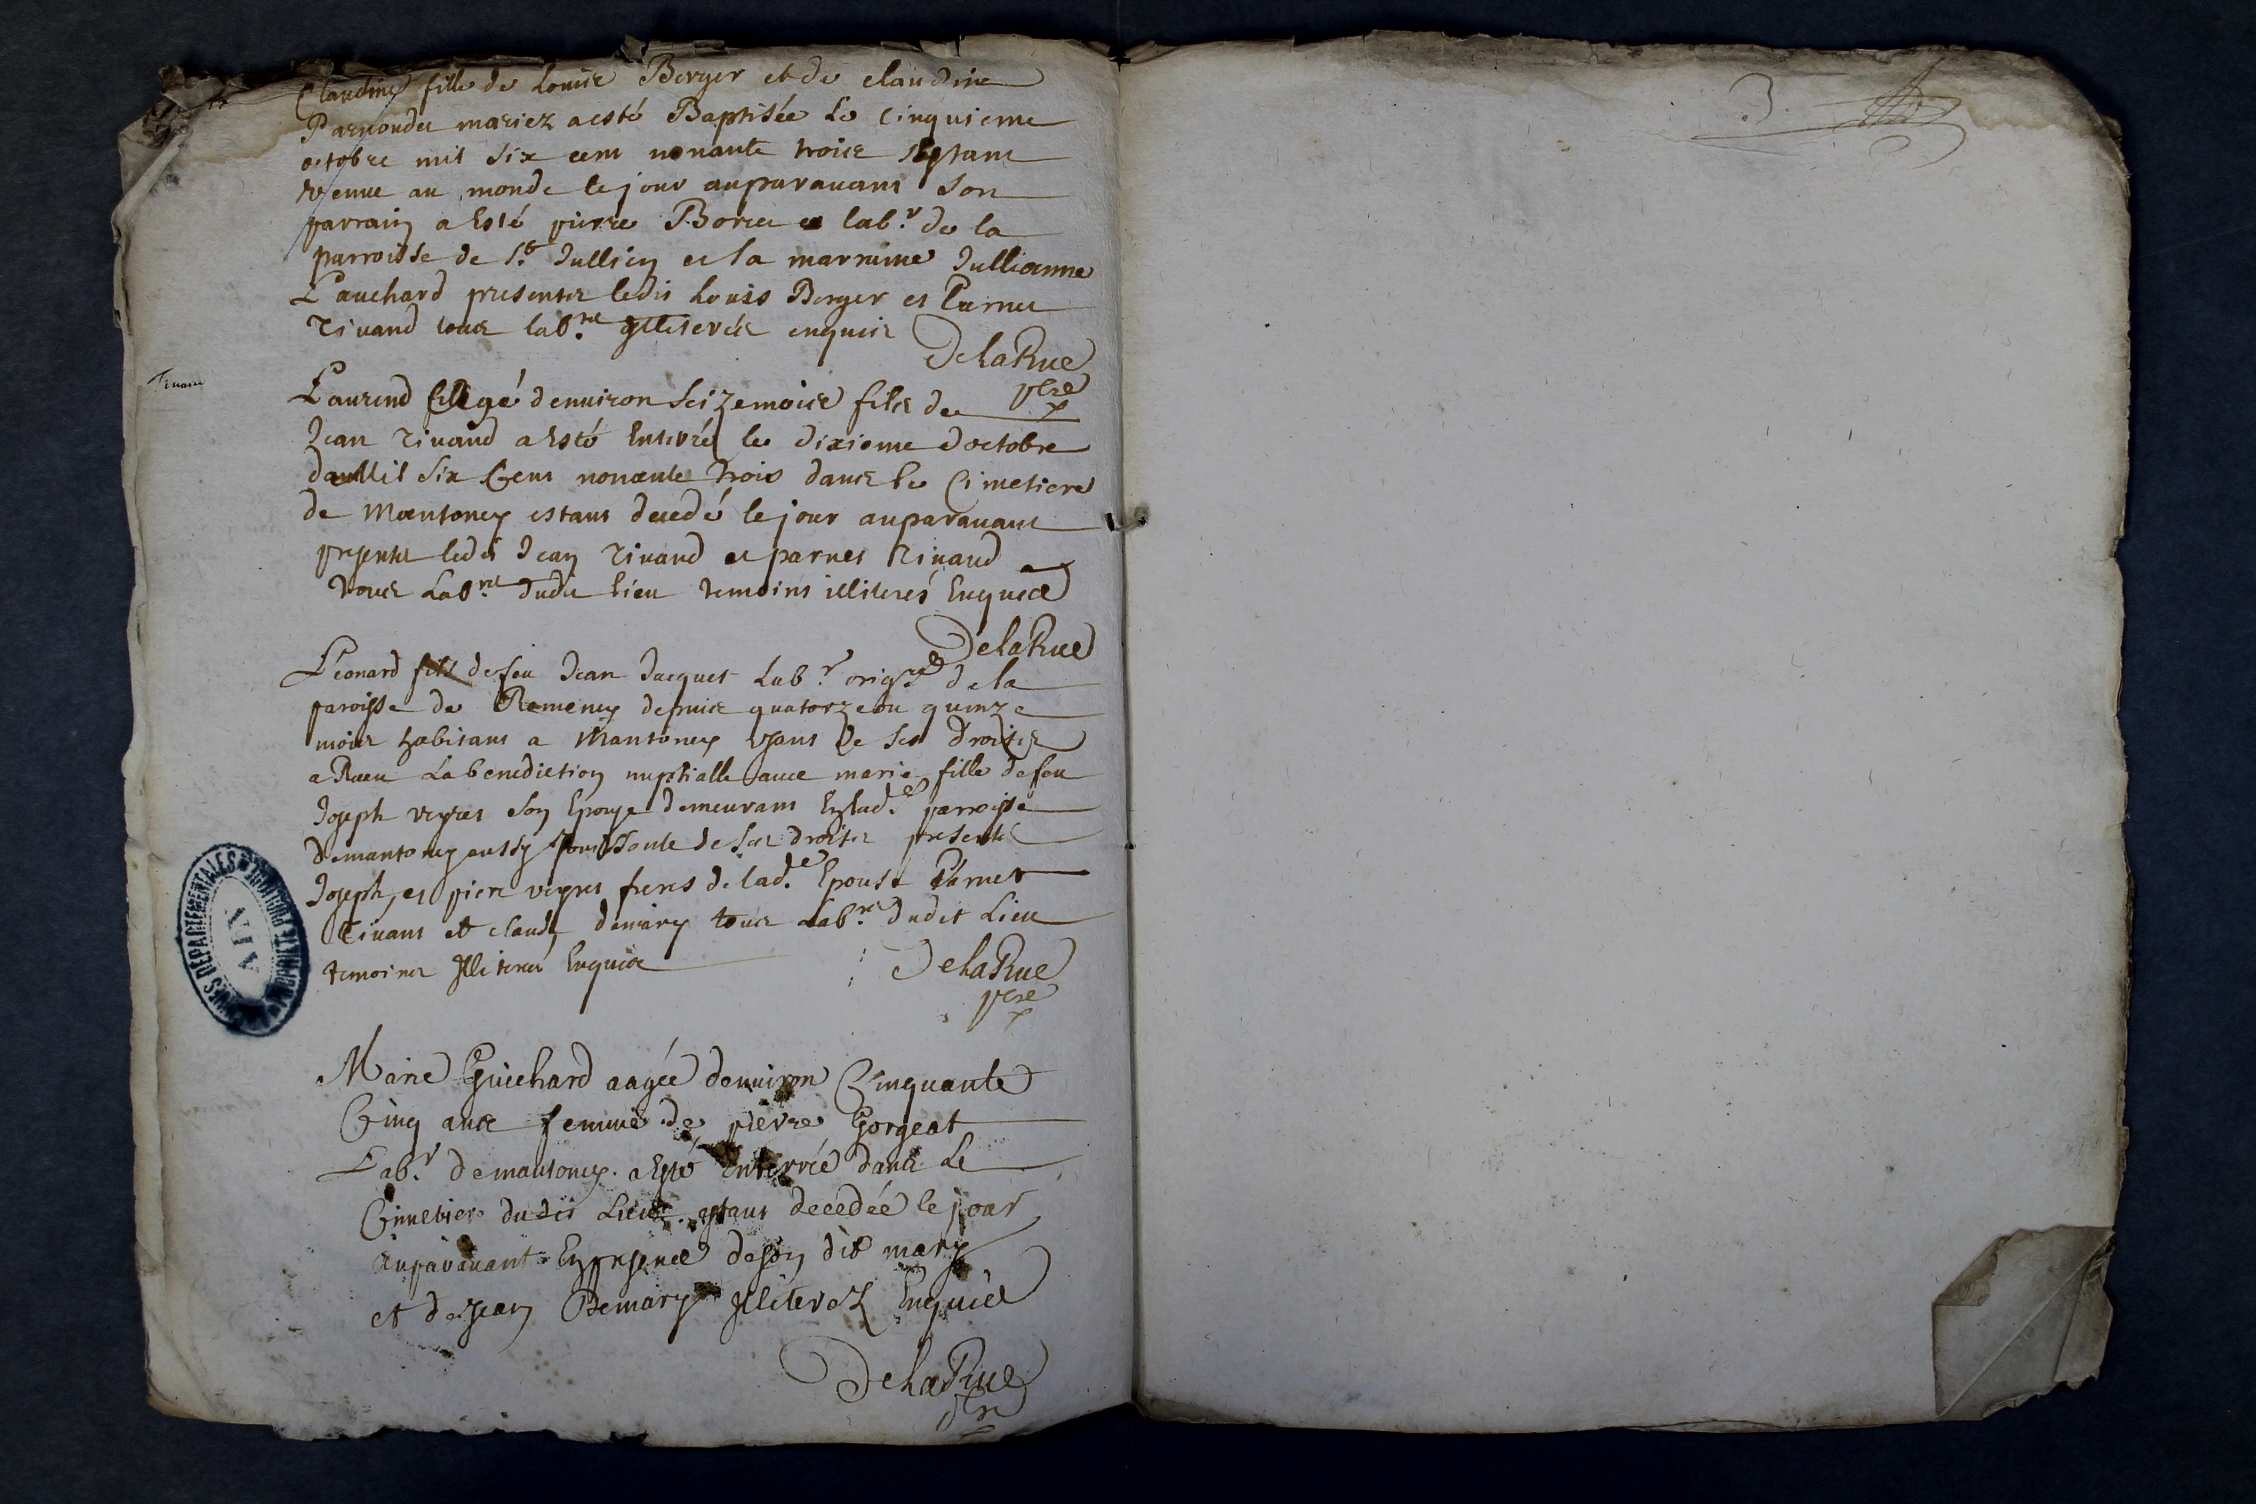 Claudine fille de Louis Berger et de claudine
mariez a esté Baptisée Le cinquieme
octobre mil six cent nonante trois estant
venue au monde le jour auparavant son
parrain a esté pierre Borier labr. de la
parroisse de St. Jullien et la marraine Jullianne
Pauchard presentes ledit Louis Berger et Parnet
rivand tous labrs. illiterés enquis
DelaRue
ptre
rivand
Laurend aagé denviron seize mois fils de
Jean rivand a esté Enterré le dixieme doctobre
mil six Cent nonante trois dans le Cimetiere
de Mantoney estant decedé le jour auparavant
presents ledit Jean rivand et parnet rivand
tous Labrs. dudit lieu temoins illiterés Enquis
DelaRue
Léonard fils de feu Jean Jacquet Labr. origre. de la
paroisse de Romeney depuis quatorze ou quinze
mois habitant a Mantoney usant de ses Droits
a Receu La benediction nuptialle avec marie fille de feu
Joseph veyret son Epouse demeurant Enlad.e parroisse
demantoney aussy Jouissante de ses droits presents
Joseph et piere veyret freres de lad.e Epouse Parnet
rivant et claude demary tous Labrs. dudit Lieu
temoins Illiterés Enquis
DelaRue
ptre
ARCHIVES DEPARTEMENTALES
AIN
Marie Guichard aagée denviron Cinquante
Cinq ans femme de pierre Gorgeat
Labr. demantoney a esté Enterrée dans Le
Cimetier dudit Lieu estant decedée le jour
auparavant En presence deson dit mary
et de Jean Demary Illiterez Enquis
DelaRue
ptre
3.